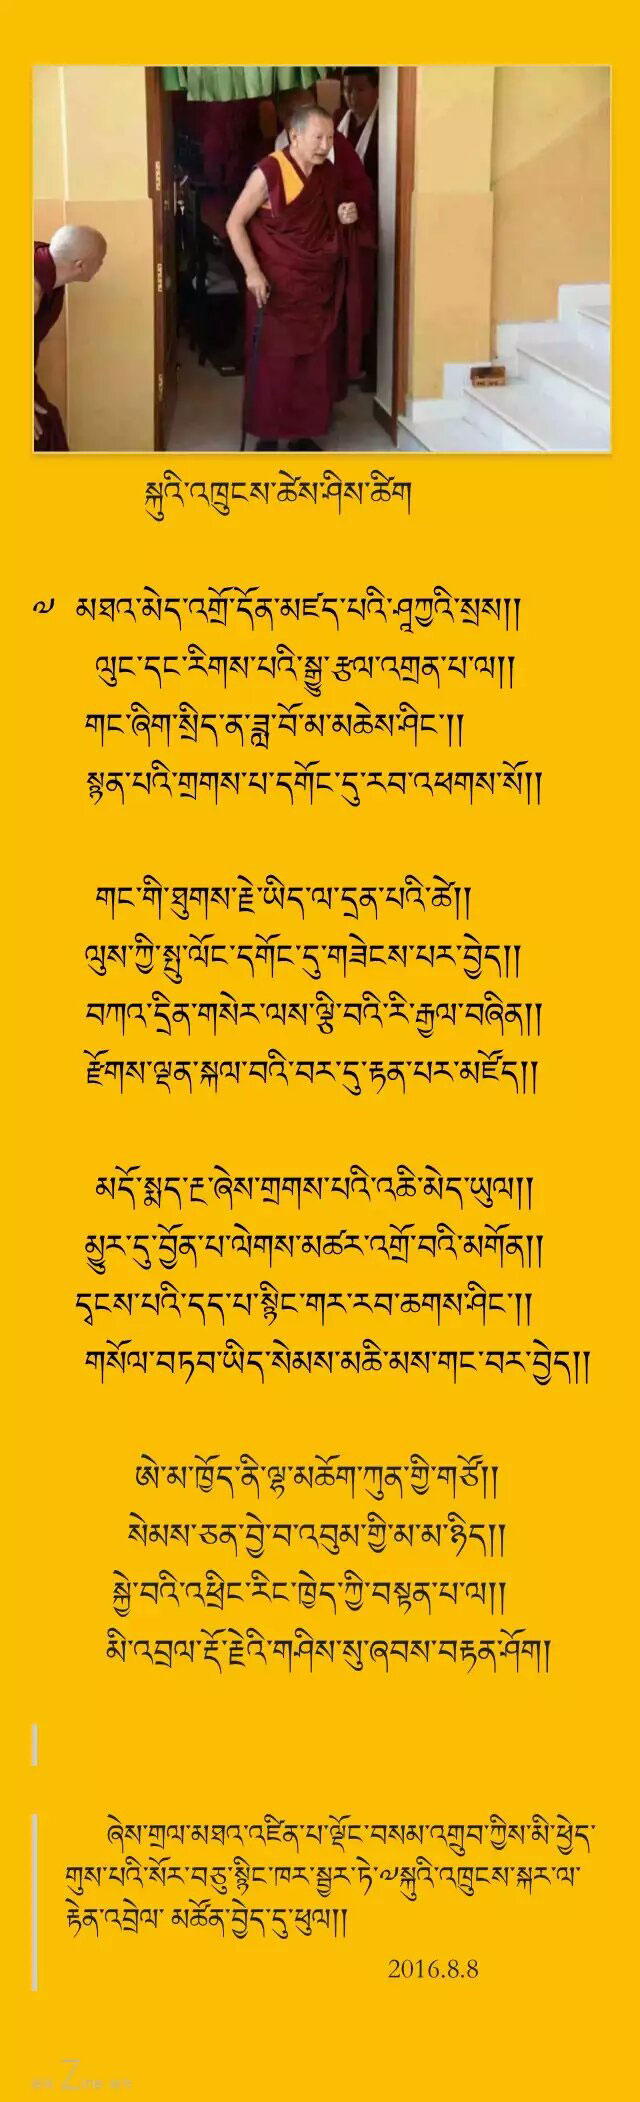 སྐུའི་འཁྲུངས་ཚེས་ཤིས་ཚིག
༧ མཐའ་མེད་འགྲོ་དོན་མཛད་པའི་ཤཱཀྱའི་སྲས།།
ལུང་དང་རིགས་པའི་སྒྱུ་རྩལ་འགྲན་པ་ལ།།
གང་ཞིག་སྲིད་ན་ཟླ་བོ་མ་མཆེས་ཤིང་།།
སྙན་པའི་གྲགས་པ་དགོང་དུ་རབ་འཕགས་སོ།།
གང་གི་ཐུགས་རྗེ་ཡིད་ལ་དྲན་པའི་ཚེ།།
ལུས་ཀྱི་སྤུ་ལོང་དགོང་དུ་གཟེངས་པར་བྱེད།།
བཀའ་དྲིན་གསེར་ལས་ལྕི་བའི་རི་རྒྱལ་བཞིན།།
རྫོགས་ལྡན་སྐལ་བའི་བར་དུ་རྟན་པར་མཛོད།།
མདོ་སྨད་རྔ་ཞེས་གྲགས་པའི་འཆི་མེད་ཡུལ།།
མྱུར་དུ་བྱོན་པ་ལེགས་མཚར་འགྲོ་བའི་མགོན།།
དྭངས་པའི་དད་པ་སྙིང་གར་རབ་ཆགས་ཤིང་།།
གསོལ་བཏབ་ཡིད་སེམས་མཆི་མས་གང་བར་བྱེད།།
ཨེ་མ་ཁྱོད་ནི་ལྷ་མཆོག་ཀུན་གྱི་གཙོ།།
སེམས་ཅན་བྱེ་བ་འབུམ་གྱི་མ་མ་ཉིད།།
སྐྱེ་བའི་འཕྲིང་རིང་ཁྱེད་ཀྱི་བསྟན་པ་ལ།།
མི་འབྲལ་རྡོ་རྗེའི་གཤིས་སུ་ཞབས་བརྟན་ཤོག།
ཞེས་གྲལ་མཐའ་འཛིན་པ་ལྡོང་བསམ་འགྲུབ་ཀྱིས་མི་ཕྱེད་
གུས་པའི་སོར་བཅུ་སྙིང་ཁར་སྦྱར་ཏེ་༧སྐུའི་འཁྲུངས་སྐར་ལ་
རྟེན་འབྲེལ་ མཚོན་བྱེད་དུ་ཕུལ།།
2016.8.8